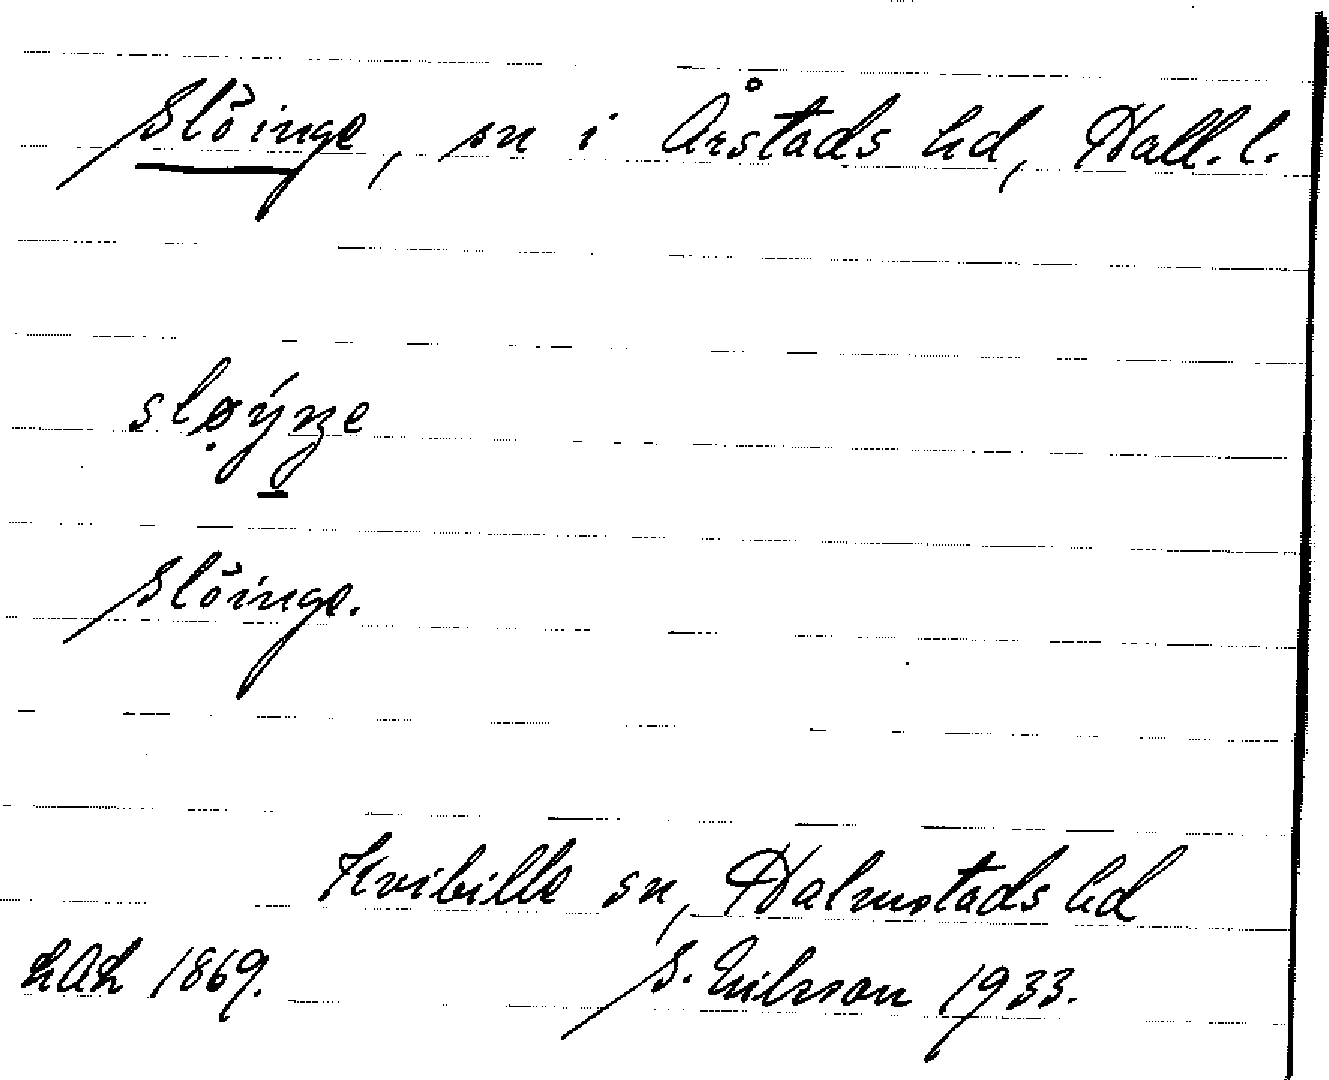 Slöinge, sn i Årstads hd, Hall. l.
Slöinge.
Kvibille sn, Halmstads hd
1869. S. Nilsson 1933.